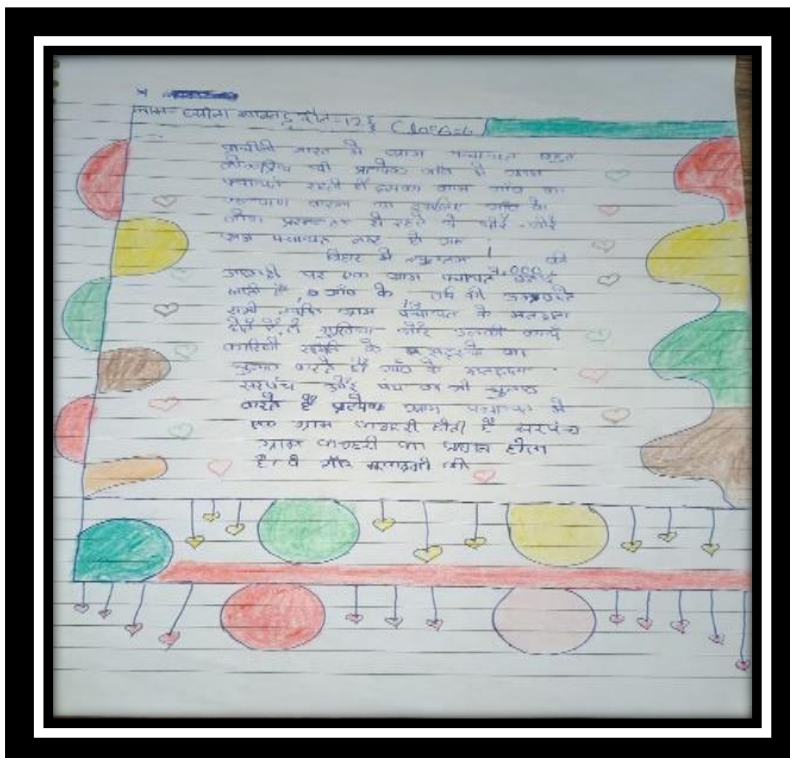 नाम- रोल-12 Class-6
प्राचीन भारत में ग्राम पंचायत बहुत
लोकप्रिय थी प्रत्येक गाँव में ग्राम
पंचायत रहती थी इसका काम गाँव का
कल्याण करना था इसलिए गाँव के
लोग प्रसन्नता से रहते थे धीरे-धीरे
ग्राम पंचायत नष्ट हो गई
बिहार में न्यूनतम की
आबादी पर एक ग्राम पंचायत 7,000
जाती है, गाँव के 18 वर्ष की
सभी व्यक्ति ग्राम पंचायत के मतदाता
होते हैं, वे मुखिया और उनकी कार्य
कारिणी समिति के का
चुनाव करते हैं गाँव के मतदाता
सरपंच और पंच का भी चुनाव
करते हैं प्रत्येक ग्राम पंचायत में
एक ग्राम कचहरी होती है सरपंच
ग्राम कचहरी का प्रधान होता
है। वे की